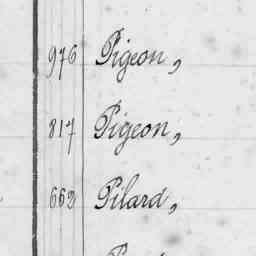 976 Pigeon,
817 Pigeon,
662 Pilard,